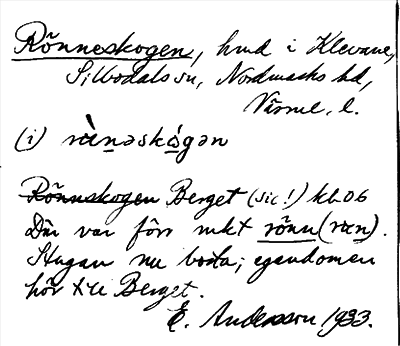 Rönneskogen, hmd i Klevane,
Silbodals sn, Nordmarks hd,
Värml. l.
(i) rὰnəskógən
Rönnskogen Berget (sic!) kb. 06
Där var förr mkt rönn (rœn).
Stugan nu borta; egendomen
hör t. ü Berget.
E. Andersson 1933.